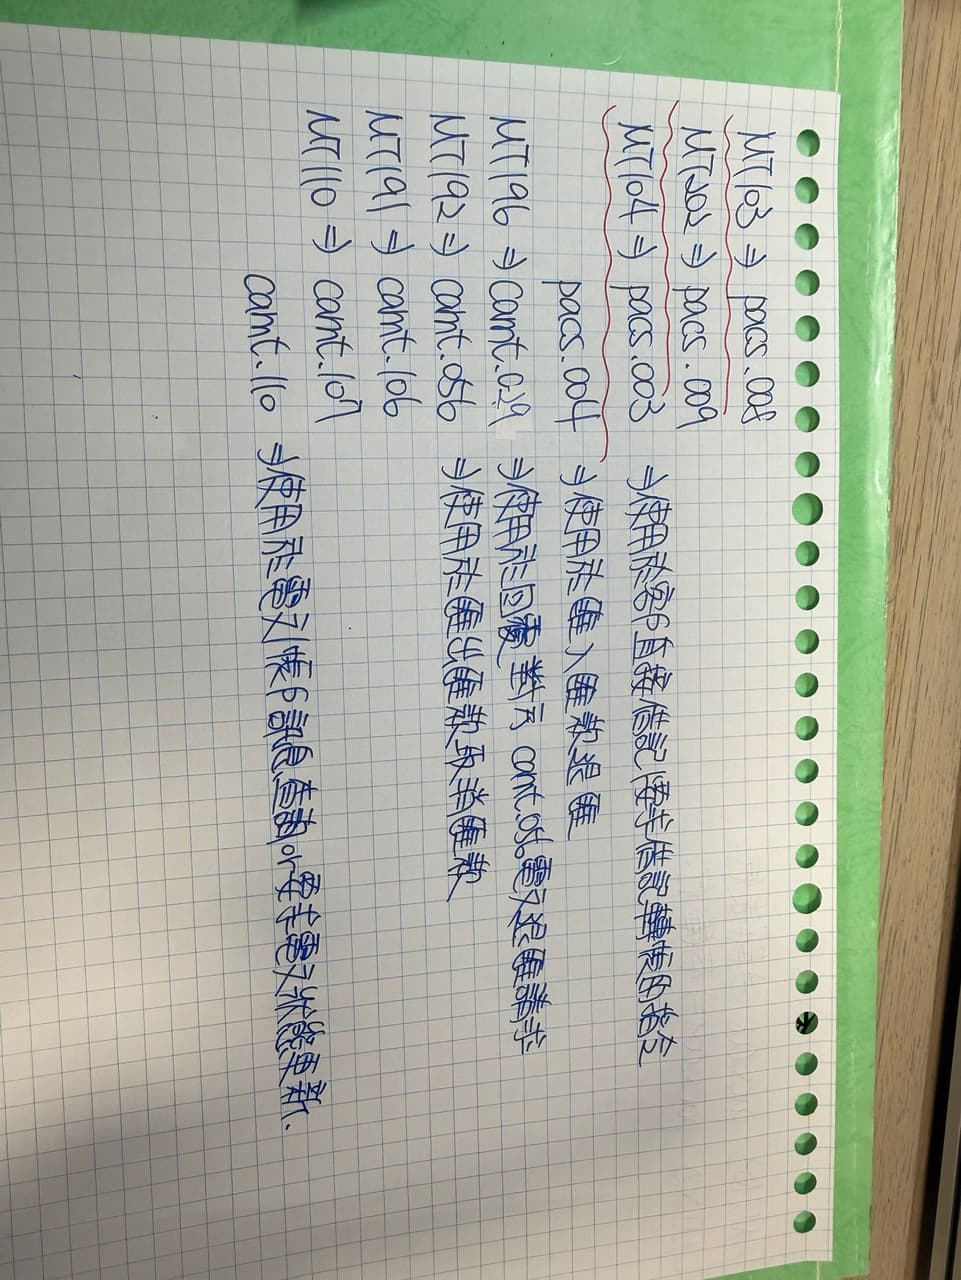 MT103 ⇒ pacs.008
MT202 ⇒ pacs.009
MT104 ⇒ pacs.003 ⇒使用於客戶直接借記/要求借記轉帳的指令
pacs.004 ⇒使用於匯入匯款退匯
MT196 ⇒ camt.029 ⇒使用於回覆對方camt.056電文退匯請求
MT192 ⇒ camt.056 ⇒使用於匯出匯款取消匯款
MT191 ⇒ camt.106
MT110 ⇒ camt.107
camt.110 ⇒使用於電文/帳戶訊息查詢or要求電文狀態更新.